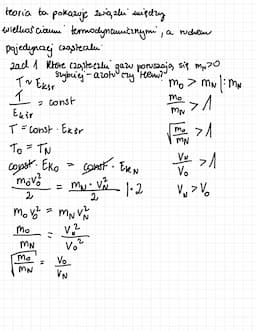 teoria ta pokazuje związki między
wielkościami termodynamicznymi, a ruchem
pojedynczej cząsteczki
zad 1 Które cząsteczki gazu poruszają się
szybciej - azotu czy tlenu?
m_N > 0
T ~ Ekśr
T / Ekśr = const
T = const · Ekśr
T_O = T_N
const · E_KO = const · E_KN
m_O v_O² / 2 = m_N · v_N² / 2 | · 2
m_O v_O² = m_N v_N²
m_O / m_N = v_N² / v_O²
√(m_O / m_N) = v_O / v_N
m_O > m_N |: m_N
m_O / m_N > 1
√(m_O / m_N) > 1
v_N / v_O > 1
v_N > v_O